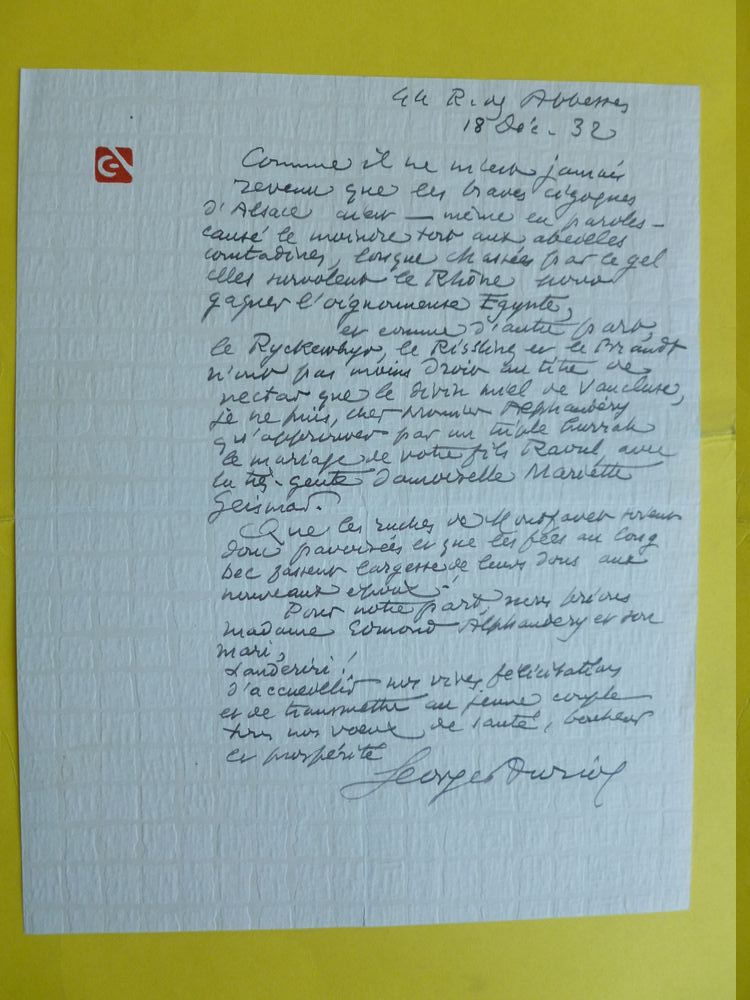 44 R. des Abbesses
18 Déc. 32
Comme il ne m'est jamais
revenu que les braves cigognes
d'Alsace aient — même en paroles —
causé le moindre tort aux abeilles
comtadines, lorsque chassées par le gel
elles survolent le Rhône pour
gagner l'oignonneuse Egypte,
et comme d'autre part,
le Ryckewhyr, le Rissling et le Brandt
n'ont pas moins droit au titre de
nectar que le divin miel de Vaucluse,
je ne puis, cher Monsieur Alphandéry
qu'approuver par un triple hurrah
le mariage de votre fils Raoul, avec
la très-gente Damoiselle Mariette
Geismar.
Que les ruches de Montfavet soient
donc pavoisées et que les fées au long
bec fassent largesse de leurs dons aux
nouveaux époux !
Pour notre part, nous prions
Madame Edmond Alphandéry et son
mari,
Landeriri !
d'accueillir nos vives félicitations
et de transmettre au jeune couple
tous nos voeux de santé, bonheur
et prospérité
Georges